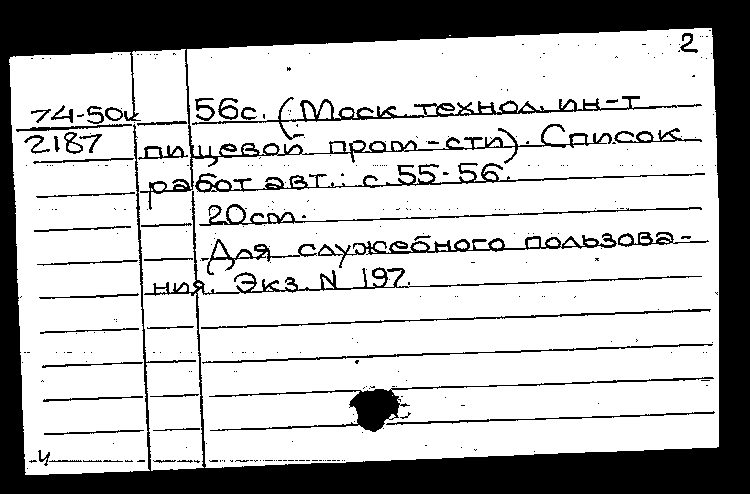 2
74-50к 56с. (Моск. технол. ин-т
2187 пищевой пром-сти). Список
работ авт.: с. 55-56.
20 cm.
Для служебного пользова-
ния. Экз. N 197.